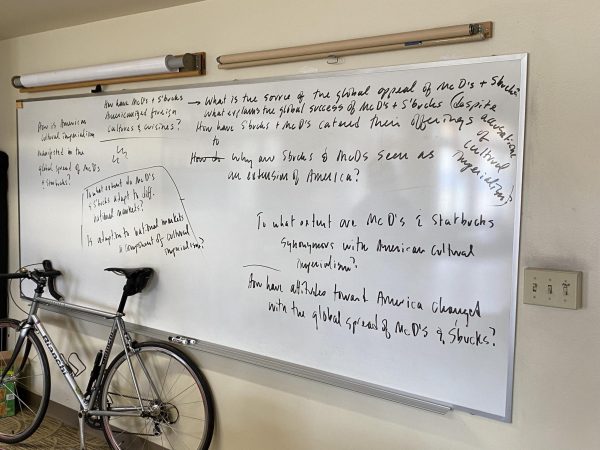 How is American
cultural imperialism
manifested in the
global spread of McD's
+ Starbucks?
How have McD's + S'bucks
Americanized foreign
cultures & cuisines?
To what extent do McD's
& S'bucks adapt to diff.
national markets?
Is adaption to national markets
a component of cultural
imperialism?
→ What is the source of the global appeal of McD's + Sbucks?
What explains the global success of McD's + S'bucks despite
accusations
of
cultural
imperialism?
How have Sbucks + McD's catered their offerings
to
Why are Sbucks & McDs seen as
an extension of America?
To what extent are McD's & Starbucks
synonymous with American cultural
imperialism?
How have attitudes toward America changed
with the global spread of McD's & S'bucks?
Bianchi